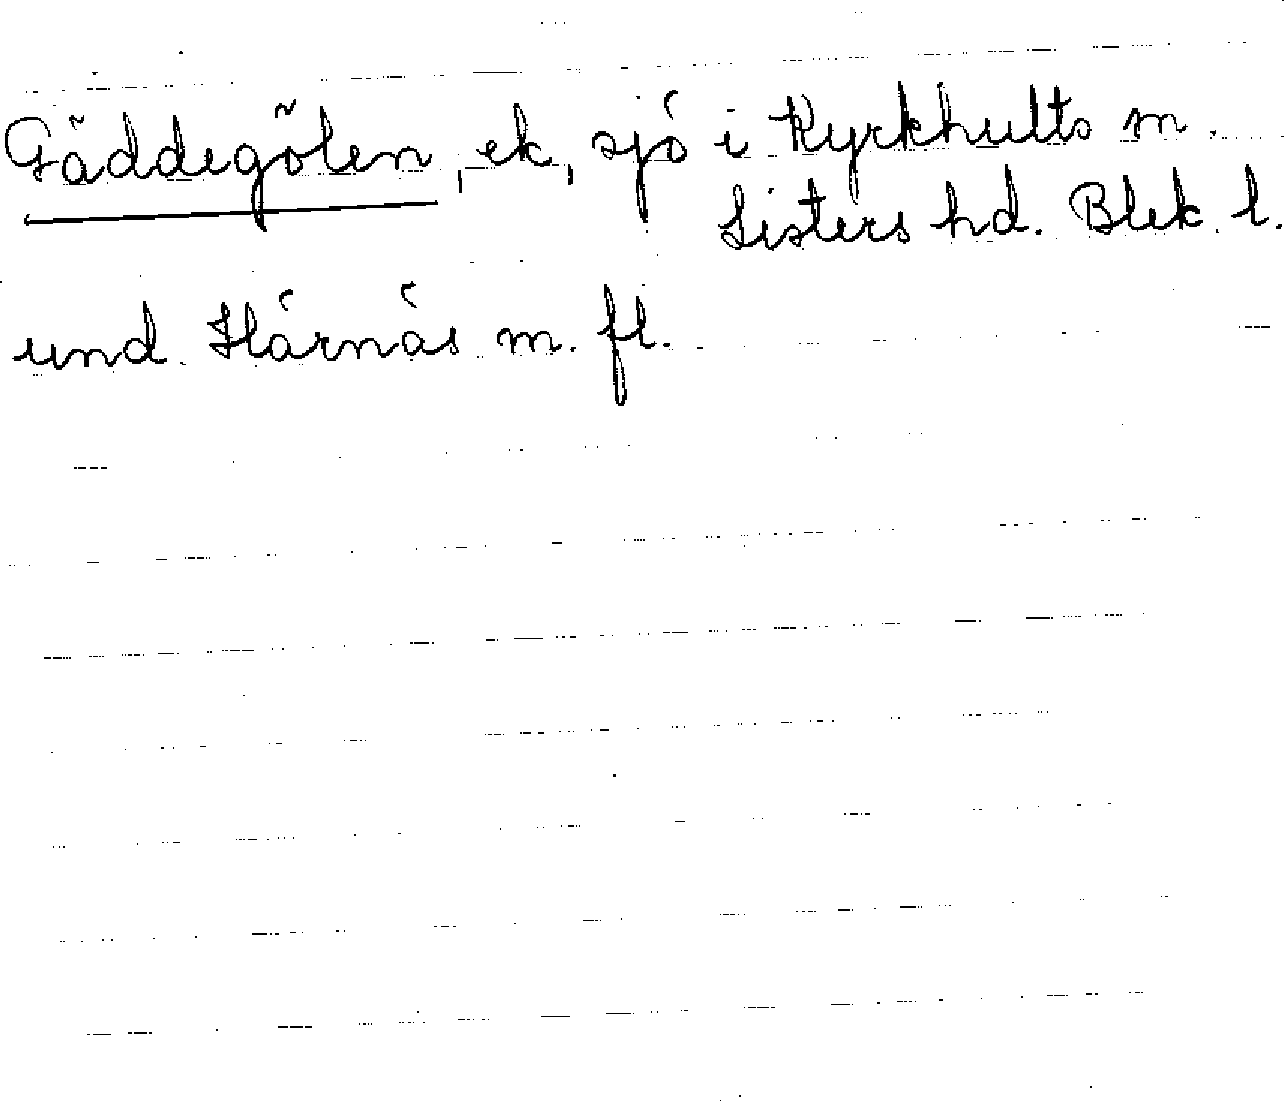 Gäddegölen, ek, sjö i Kyrkhults m.
Listers hd. Blek. l.
und. Härnäs m. fl.